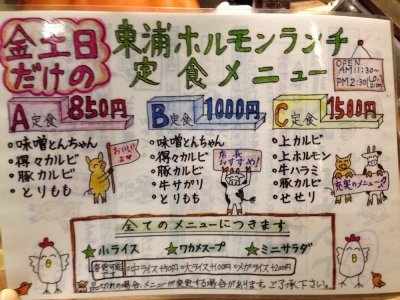 金土日だけの
東浦ホルモンランチ
定食メニュー
OPEN
AM11:30~
PM2:30
A定食 850円
・味噌とんちゃん
・得々カルビ
・豚カルビ
・とりもも
おいしいよ
B定食 1000円
・味噌とんちゃん
・得々カルビ
・豚カルビ
・牛サガリ
・とりもも
店長おすすめ!
C定食 1500円
・上カルビ
・上ホルモン
・牛ハラミ
・豚カルビ
・せせり
充実のメニュー
全てのメニューにつきます
★小ライス ★ワカメスープ ★ミニサラダ
変更可能 中ライス+50円 大ライス+100円 メガライス+200円
品切れの場合、メニューが変更する場合があります。ご了承下さい。